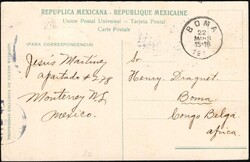 REPUBLICA MEXICANA - REPUBLIQUE MEXICAINE
Union Postal Universal - Tarjeta Postal
Carte Postale
(PARA CORRESPONDENCIA)
BOMA
22
15-18
Jesús Martinez
Apartado # 278
Monterrey N.L.
Mexico.
Sr.
Henry Draguet.
Boma
Congo Belga
Africa.